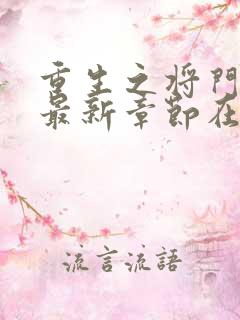 重生之将門
最新章節在
流言流語